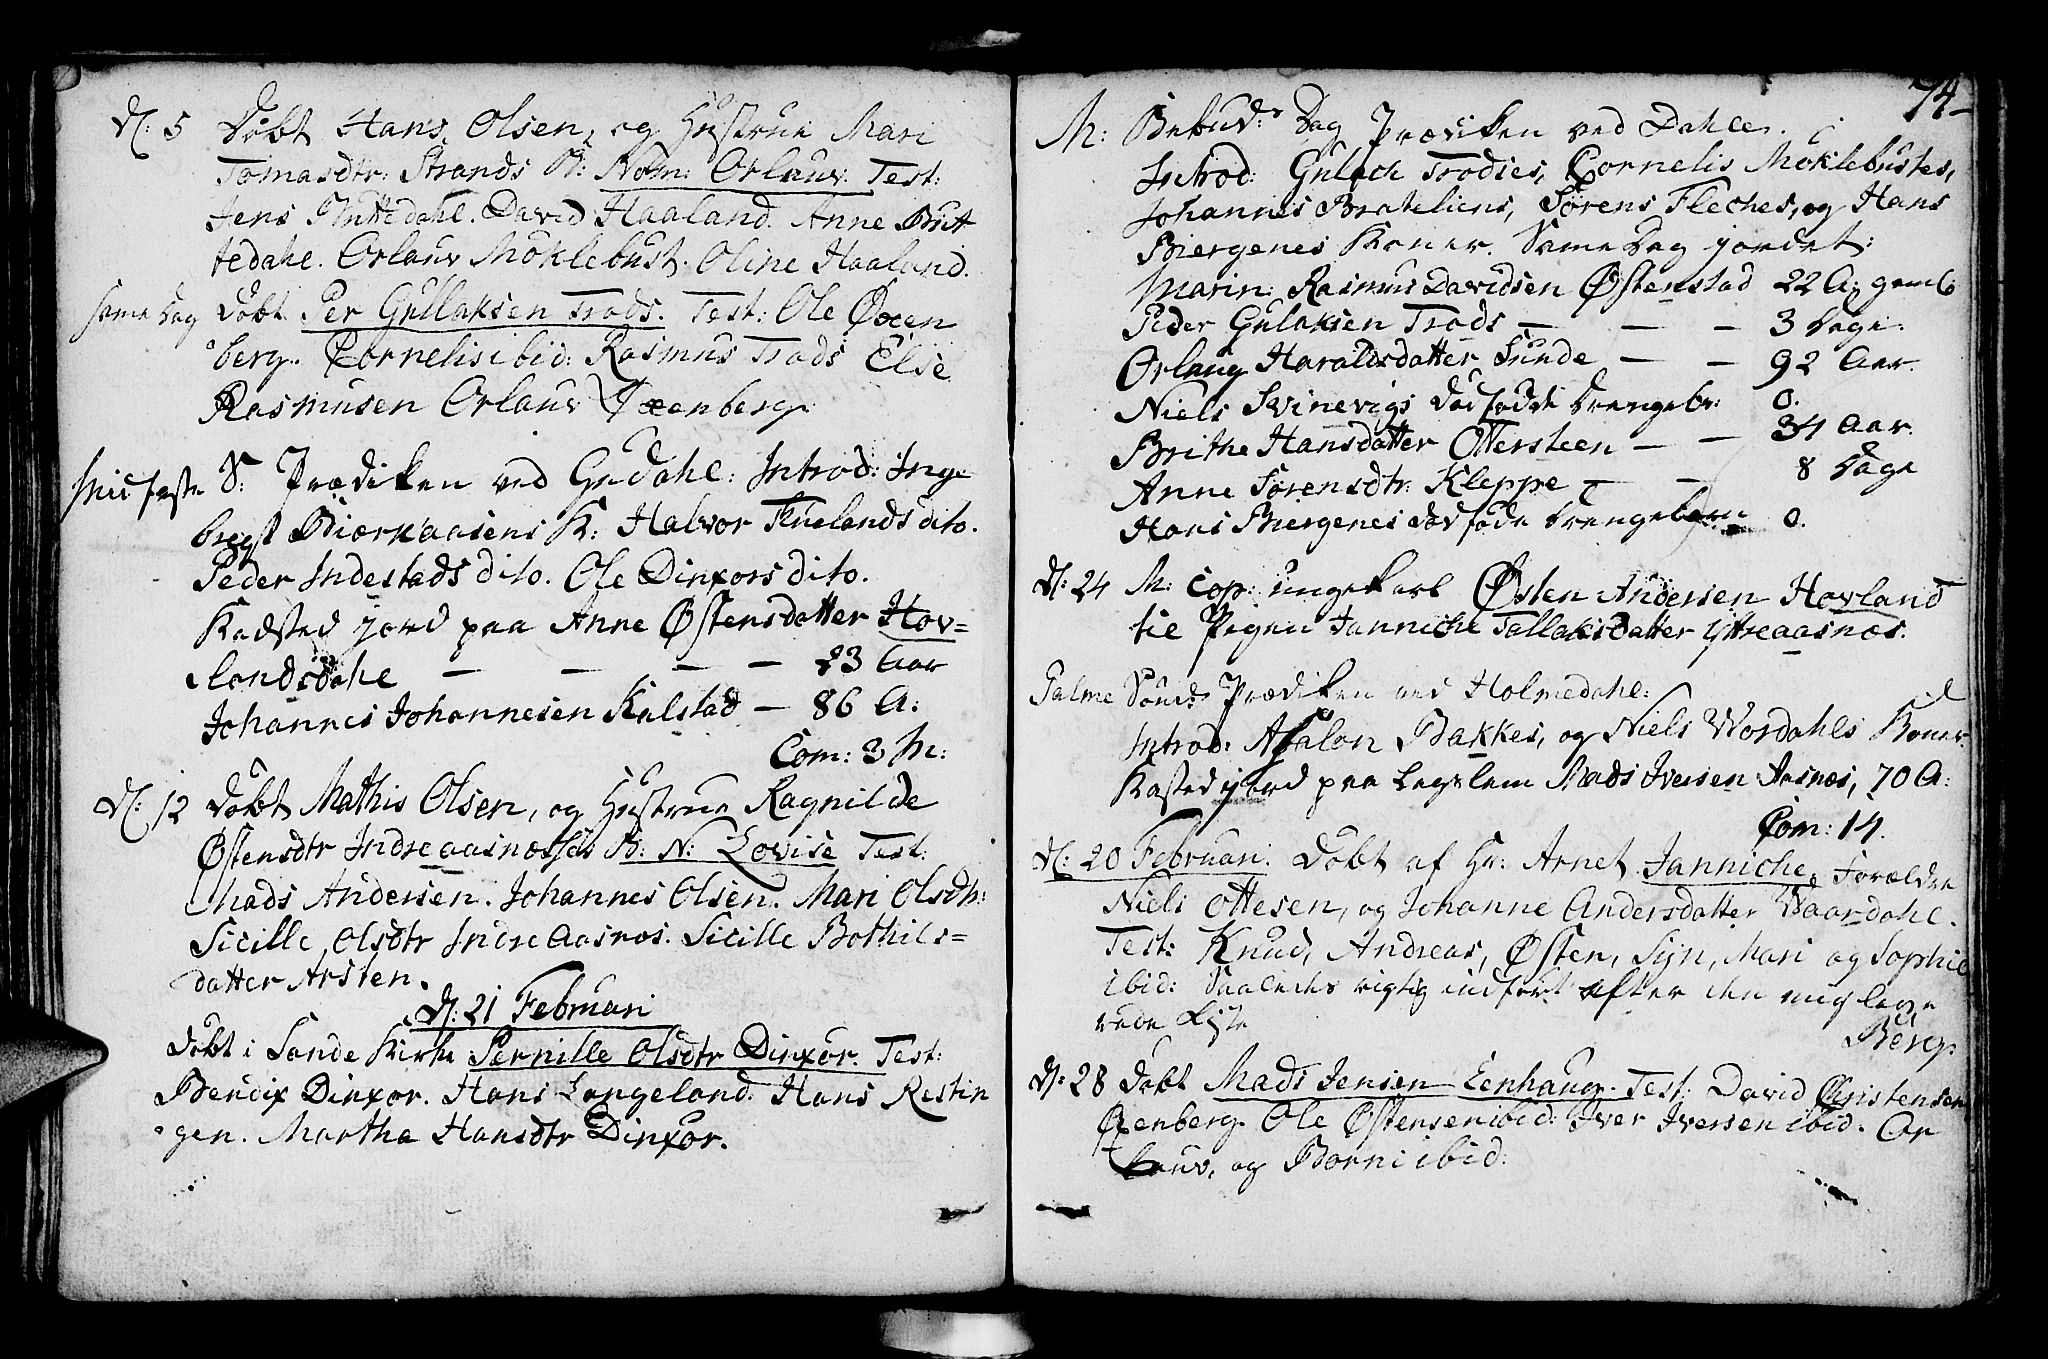 D: 5 Döbt Hans Olsen, og Hustrue Mari
Tomasdtr: Strands B: Nom: Orlauv. Test:
Jens Buttedahl. David Haaland. Anne Butt
tedahl. Orlauv Möklebust. Oline Haaland.
sama Dag Döbt Per Gullaksen Trods. Test: Ole Øxen
berg. Cornelis ibid: Rasmus Trods Else
Rasmusen Orlauv Øxenberg.
Mid faste S: Prædiken ved Gr Dahl: Introd: Inge
bregt Biærkaasens K: Halvor Fluelands dito.
Peder Indestads dito. Ole Dinxors dito.
Kadsted jord paa Anne Østensdatter Hov=
landsdahl — — — — 23 Aar
Johannes Johannesen Kalstad — 86 A:
Com: 3 M:
D: 12 Döbt Mathis Olsen, og Hustrue Ragnilde
Østensdtr Indreaasnæsses B: N: Lovise Test:
Mads Andersen. Johannes Olsen. Mari Olsdtr:
Sicille Olsdtr Indre Aasnæs. Sicille Bothils=
datter Arsten.
D: 21 Februari
Döbt i Sande Kirke Pernille Olsdtr Dinxor. Test:
Bendix Dinxor. Hans Langeland. Hans Restin
gen. Martha Hansdtr Dinxor.
74
M: Bebud:s Dag Prædiken ved Dahle.
Introd: Gulach Trodses, Cornelis Möklebustes,
Johannes Brateliens, Sörens Fleches, og Hans
Biergenes Koner. Same Dag jordet:
Marin: Rasmus Davidsen Østenstad 22 A: gaml
Peder Gulaksen Trods — — — 3 Dage.
Orlaug Haraldsdatter Sunde — — 92 Aar.
Niels Svinevigs dödfödde Drengebr: 0.
Brithe Hansdatter Ottersteen — — 34 Aar.
Anne Sörensdtr: Kleppe — — 8 Dage
Hans Biergenes dödföde Drengebarn 0.
D: 24 M: Cop: ungekarl Østen Andersen Hovland
til Pigen Janniche Tallaksdatter Yttreaasnæs.
Palme Sönd: Prædiken ved Holmedahl:
Introd: Absalon Bakkes, og Niels Wordahls Koner.
Kasted jord paa Lagslem Mads Iversen Aasnæs, 70 A:
Com: 14.
D: 20 Februari. Döbt af Hr: Arnet Janniche, Forældre
Niels Ottesen, og Johanne Andersdatter Waardahl.
Test: Knud, Andreas, Østen, Syn, Mari og Sophie
ibid: Saaledes rigtig indfört efter den mig leve
rede Liste
Berg.
D: 28 Döbt Mads Jensen Eenhaug. Test: David Christensen
Øxenberg. Ole Østensen ibid: Iver Iversen ibid. Or
lauv, og Borni ibid: